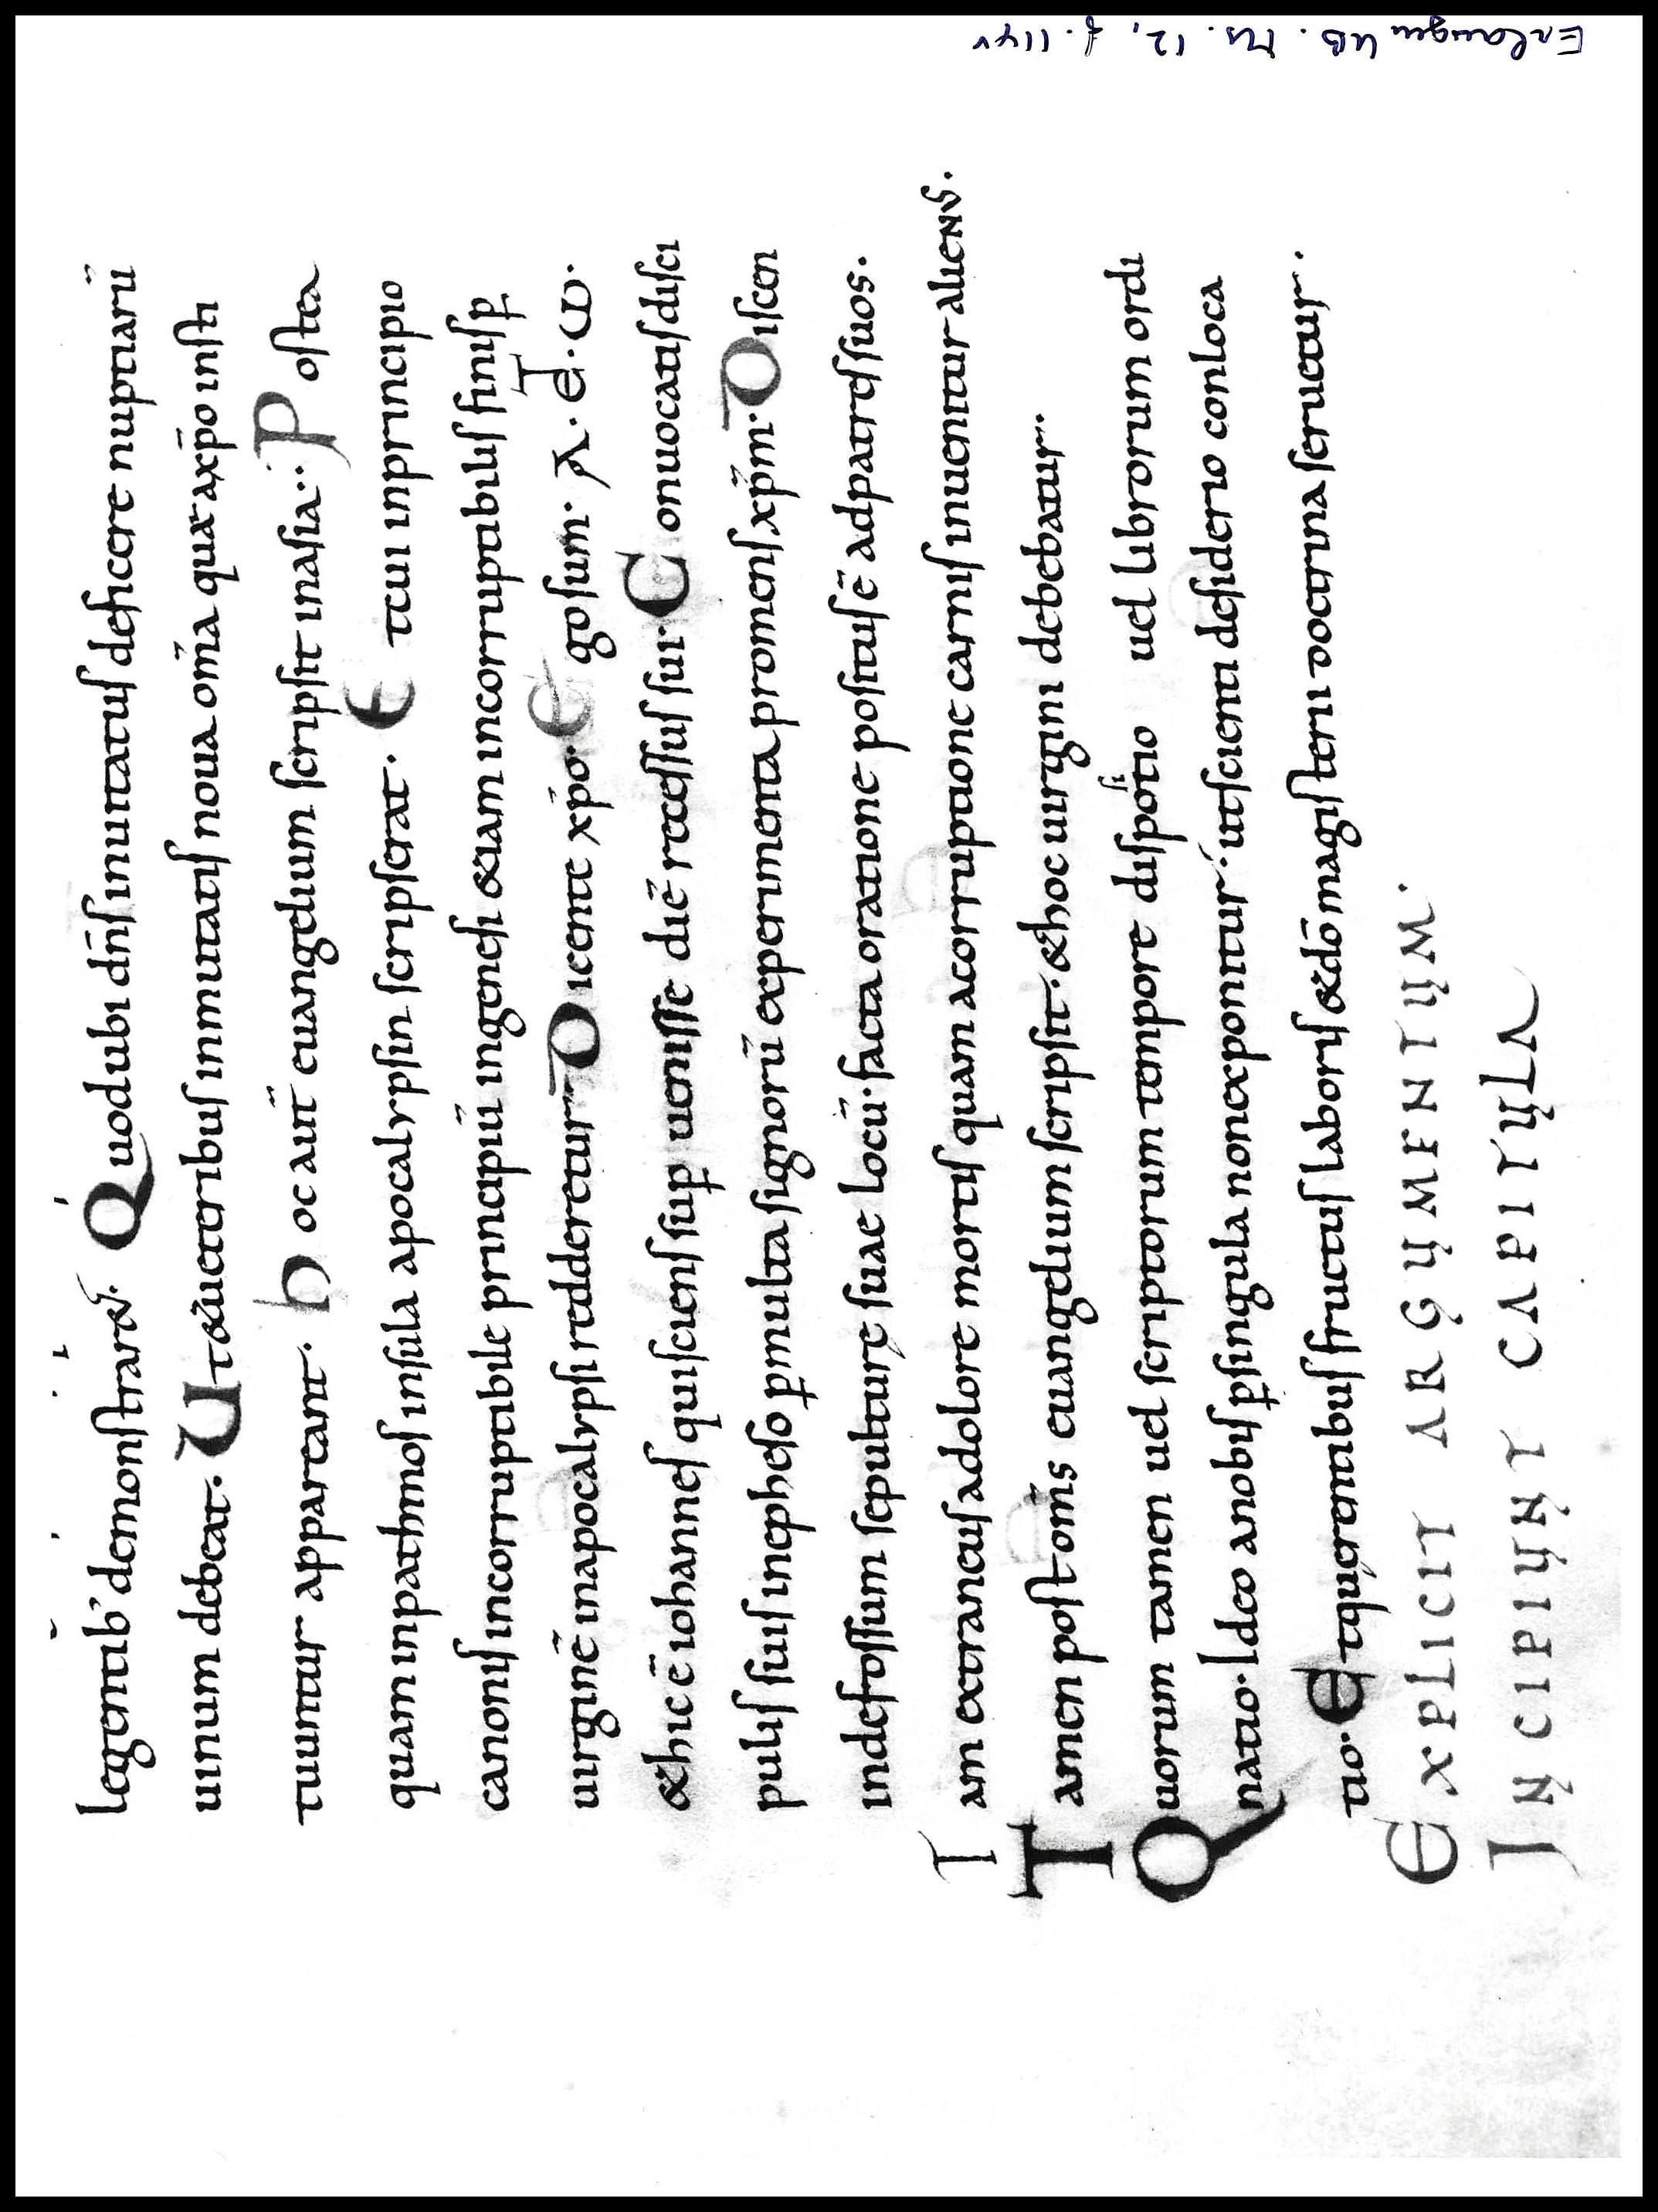 Erlangen UB. Ms. 12, f. 114v
legentib' demonstraret. Quod ubi dn̄s inuitatus deficere nuptiarū
uinum debeat. Ut & ueteribus inmutatis noua om̄a quae a xp̄o insti
tuuntur appareant. Hoc aut̄ euangelium scripsit in asia. Postea
quam in pathmos insula apocalypsin scripserat. Et cui in principio
canonis incorruptibile principiū in genesi & iam incorruptibilis finis ꝑ
uirginē in apocalypsi redderetur. Dicente xp̄o. Ego sum. A. et. ω.
& hic ē iohannes qui sciens suꝑ uenisse diē recessus sui. Conuocatis disci
pulis suis in epheso ꝑ multa signorū experimenta promens xp̄m. Discen
in defossum sepulturę suae locū. facta oratione positus ē ad patres suos.
Tam extraneus a dolore mortis quam a corruptione carnis inuenitur alienus.
Tamen post om̄s euangelium scripsit. & hoc uirgini debebatur.
Quorum tamen uel scriptorum tempore dispositio uel librorum ordi
natio. Ideo a nobis ꝑ singula non exponitur. ut scienti desiderio conloca
tio. Et quęrentibus fructus laboris & dō magisterii doctrina seruetur.
EXPLICIT ARGUMENTUM.
INCIPIUNT CAPITULA